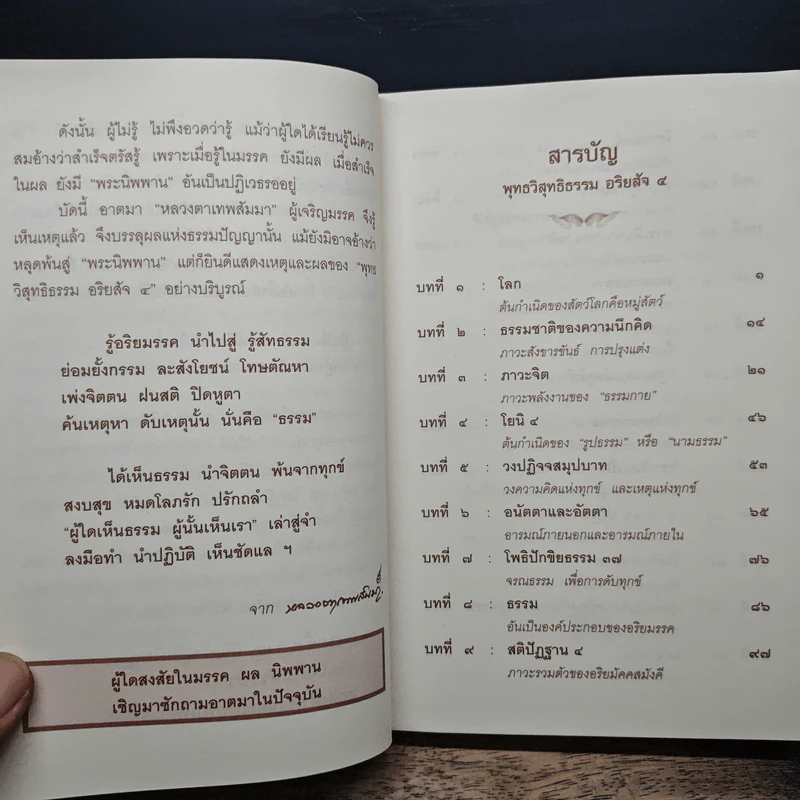 ดังนั้น ผู้ไม่รู้ ไม่พึงอวดว่ารู้ แม้ว่าผู้ใดได้เรียนรู้ไม่ควร
สมอ้างว่าสำเร็จตรัสรู้ เพราะเมื่อรู้ในมรรค ยังมีผล เมื่อสำเร็จ
ในผล ยังมี “พระนิพพาน” อันเป็นปฏิเวธรออยู่
บัดนี้ อาตมา “หลวงตาเทพสัมมา” ผู้เจริญมรรค จึงรู้
เห็นเหตุแล้ว จึงบรรลุผลแห่งธรรมปัญญานั้น แม้ยังมิอาจอ้างว่า
หลุดพ้นสู่ “พระนิพพาน” แต่ก็ยินดีแสดงเหตุและผลของ “พุทธ
วิสุทธิธรรม อริยสัจ ๔” อย่างบริบูรณ์
รู้อริยมรรค นำไปสู่ รู้สัทธรรม
ย่อมยั้งกรรม ละสังโยชน์ โทษตัณหา
เพ่งจิตตน ฝนสติ ปิดหูตา
ค้นเหตุหา ดับเหตุนั้น นั่นคือ “ธรรม”
ได้เห็นธรรม นำจิตตน พ้นจากทุกข์
สงบสุข หมดโลภรัก ปรักถลำ
“ผู้ใดเห็นธรรม ผู้นั้นเห็นเรา” เล่าสู่จำ
ลงมือทำ นำปฏิบัติ เห็นชัดแล ฯ
จาก
ผู้ใดสงสัยในมรรค ผล นิพพาน
เชิญมาซักถามอาตมาในปัจจุบัน
สารบัญ
พุทธวิสุทธิธรรม อริยสัจ ๔
บทที่ ๑ : โลก ๑
ต้นกำเนิดของสัตว์โลกคือหมู่สัตว์
บทที่ ๒ : ธรรมชาติของความนึกคิด ๑๔
ภาวะสังขารขันธ์ การปรุงแต่ง
บทที่ ๓ : ภาวะจิต ๒๑
ภาวะพลังงานของ “ธรรมกาย”
บทที่ ๔ : โยนิ ๔ ๔๖
ต้นกำเนิดของ “รูปธรรม” หรือ “นามธรรม”
บทที่ ๕ : วงปฏิจจสมุปบาท ๕๓
วงความคิดแห่งทุกข์ และเหตุแห่งทุกข์
บทที่ ๖ : อนัตตาและอัตตา ๖๕
อารมณ์ภายนอกและอารมณ์ภายใน
บทที่ ๗ : โพธิปักขิยธรรม ๓๗ ๗๖
จรณธรรม เพื่อการดับทุกข์
บทที่ ๘ : ธรรม ๘๖
อันเป็นองค์ประกอบของอริยมรรค
บทที่ ๙ : สติปัฏฐาน ๔ ๙๗
ภาวะรวมตัวของอริยมัคคสมังคี